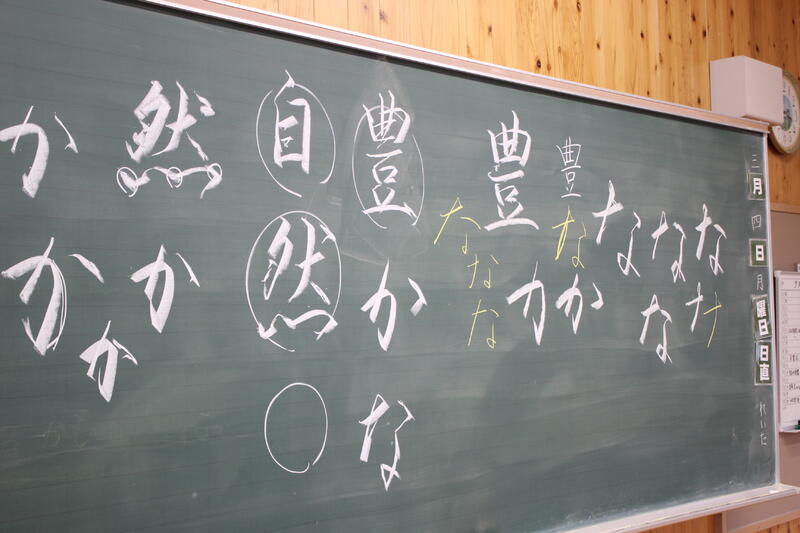 三月四日月曜日日直れいた
なナ
なな
な
豊なか
豊カ
ななな
豊かな
自然〇
然か
かかか